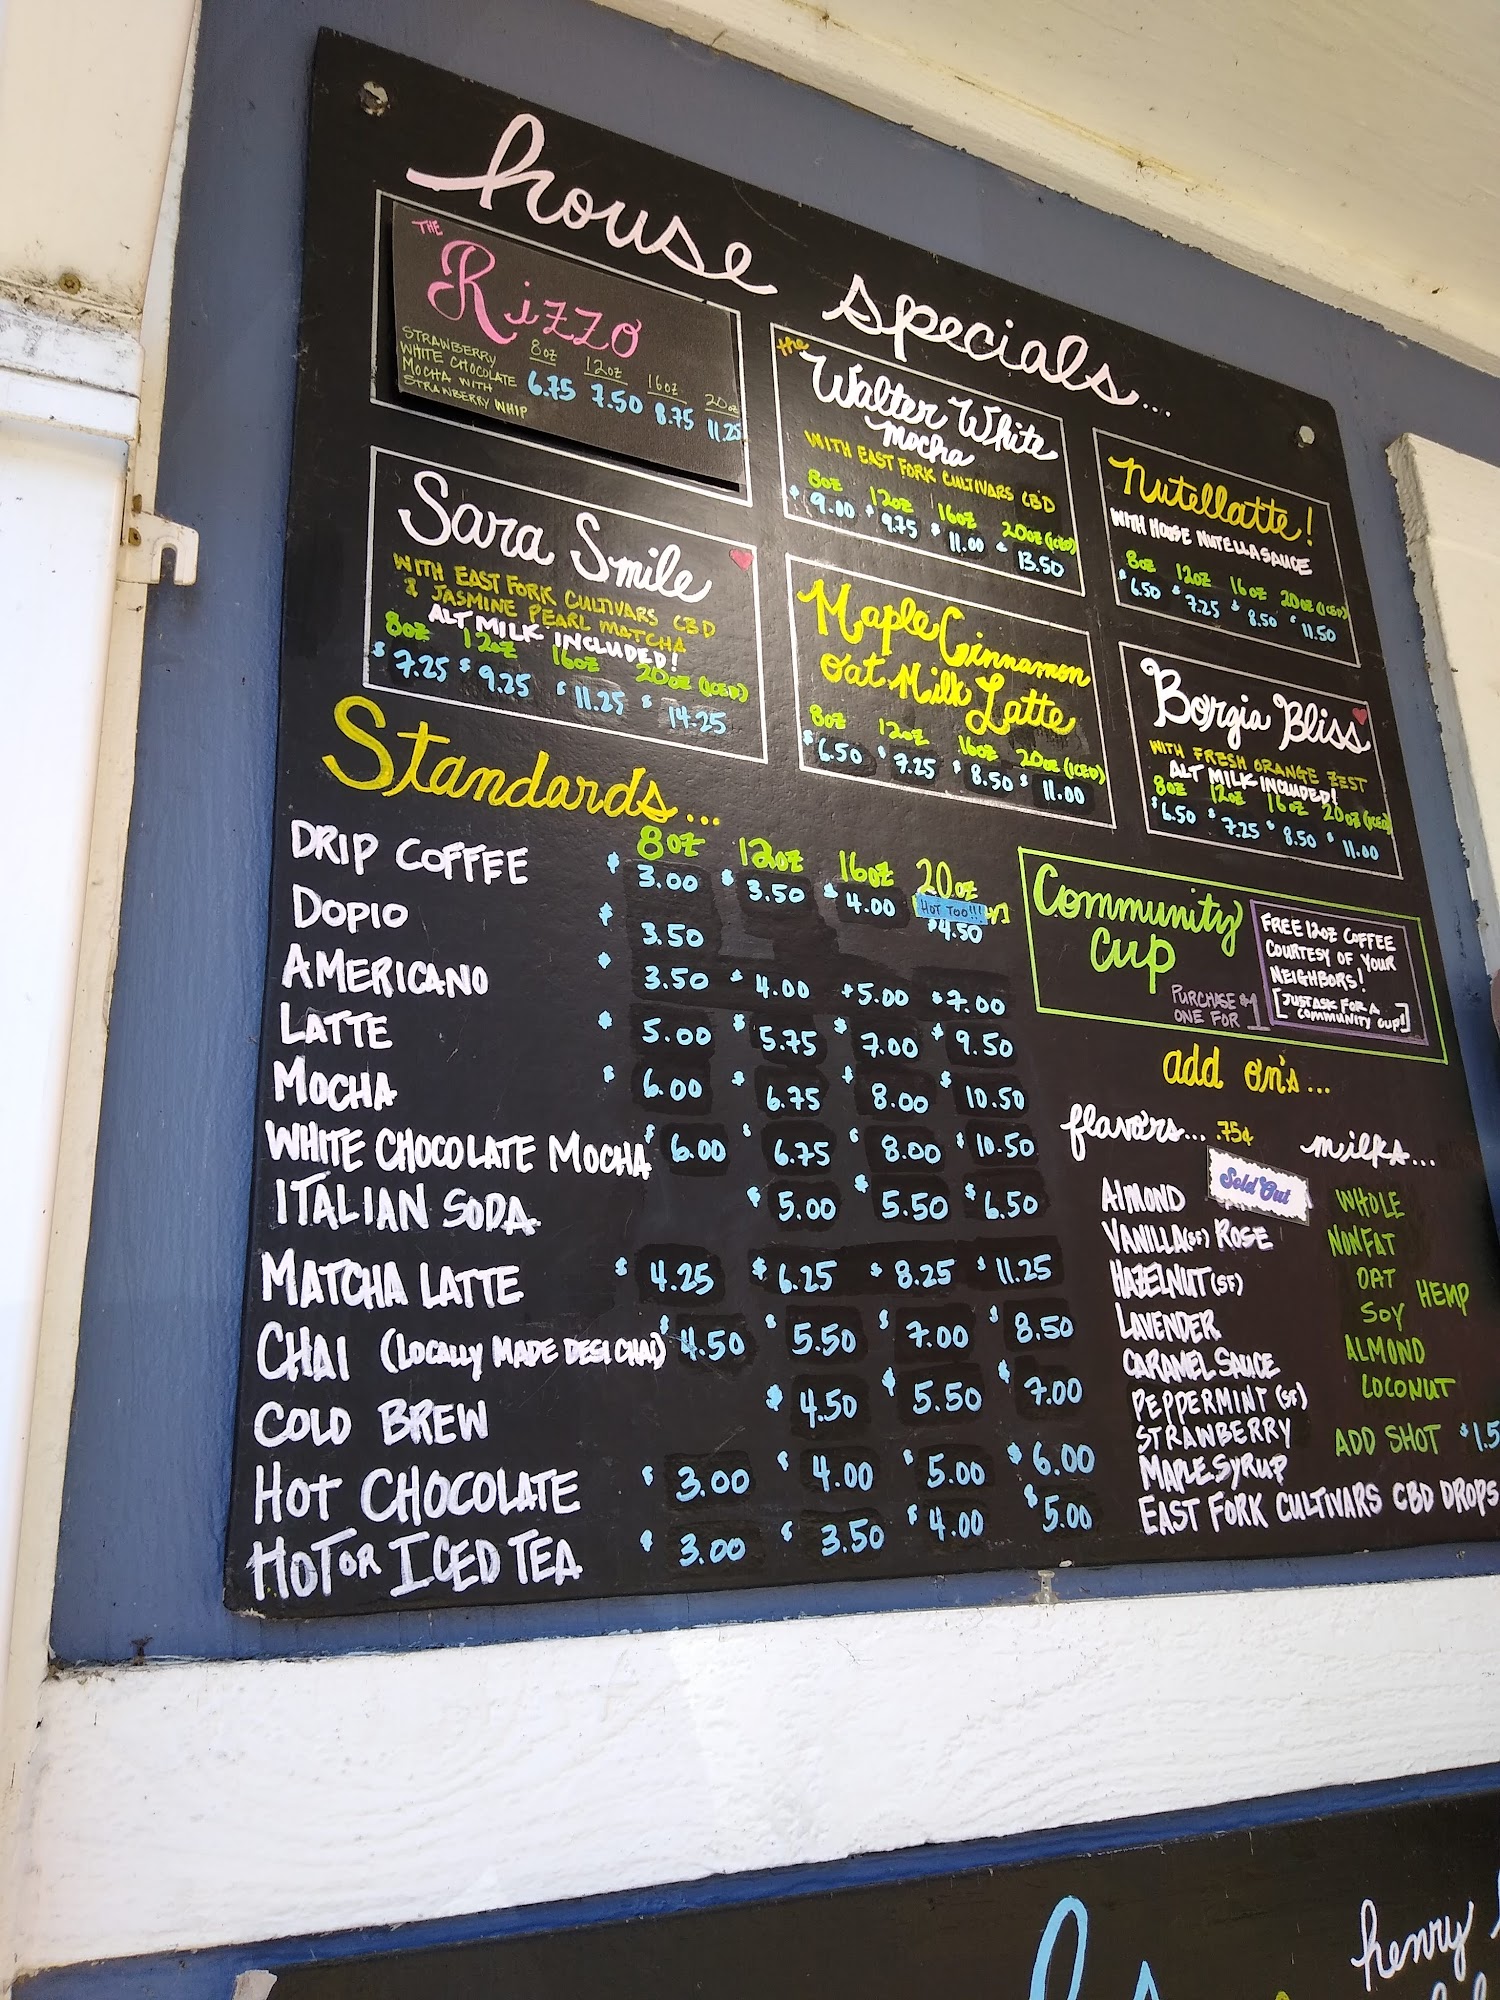 house specials...
THE
Rizzo
STRAWBERRY
WHITE CHOCOLATE
MOCHA WITH
STRAWBERRY WHIP
8oz 12oz 16oz 20oz
6.75 7.50 8.75 11.25
the
Walter White
mocha
WITH EAST FORK CULTIVARS CBD
8oz 12oz 16oz 20oz (ICED)
$9.00 $9.75 $11.00 $13.50
Nutellatte!
WITH HOUSE NUTELLA SAUCE
8oz 12oz 16oz 20oz (ICED)
$6.50 $7.25 $8.50 $11.50
Sara Smile
WITH EAST FORK CULTIVARS CBD
& JASMINE PEARL MATCHA
ALT MILK INCLUDED!
8oz 12oz 16oz 20oz (ICED)
$7.25 $9.25 $11.25 $14.25
Maple Cinnamon
Oat Milk Latte
8oz 12oz 16oz 20oz (ICED)
$6.50 $7.25 $8.50 $11.00
Borgia Bliss
WITH FRESH ORANGE ZEST
ALT MILK INCLUDED!
8oz 12oz 16oz 20oz (ICED)
$6.50 $7.25 $8.50 $11.00
Standards...
8oz 12oz 16oz 20oz
HOT TOO!!!
DRIP COFFEE $3.00 $3.50 $4.00 $4.50
DOPIO $3.50
AMERICANO $3.50 $4.00 $5.00 $7.00
LATTE $5.00 $5.75 $7.00 $9.50
MOCHA $6.00 $6.75 $8.00 $10.50
WHITE CHOCOLATE MOCHA $6.00 $6.75 $8.00 $10.50
ITALIAN SODA $5.00 $5.50 $6.50
MATCHA LATTE $4.25 $6.25 $8.25 $11.25
CHAI (LOCALLY MADE DESI CHAI) $4.50 $5.50 $7.00 $8.50
COLD BREW $4.50 $5.50 $7.00
HOT CHOCOLATE $3.00 $4.00 $5.00 $6.00
HOT OR ICED TEA $3.00 $3.50 $4.00 $5.00
Community
Cup
PURCHASE
ONE FOR $1
FREE 12oz COFFEE
COURTESY OF YOUR
NEIGHBORS!
[JUST ASK FOR A
COMMUNITY CUP!]
add on's...
flavors... .75¢
Sold Out
ALMOND
VANILLA(SF) ROSE
HAZELNUT(SF)
LAVENDER
CARAMEL SAUCE
PEPPERMINT (SF)
STRAWBERRY
MAPLE SYRUP
EAST FORK CULTIVARS CBD DROPS
milks...
WHOLE
NONFAT
OAT
SOY HEMP
ALMOND
COCONUT
ADD SHOT $1.5
henry